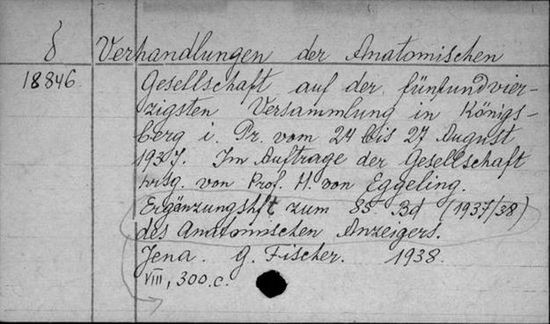 δ Verhandlungen der Anatomischen
18846 Gesellschaft auf der fünfundvier-
zigsten Versammlung in Königs-
berg i. Pr. vom 24 bis 27 August
1937. Im Auftrage der Gesellschaft
hrsg. von Prof. H. von Eggeling.
Ergänzungshft zum 85 Bd (1937/38)
des Anatomischen Anzeigers.
Jena. G. Fischer. 1938.
VIII, 300 c.